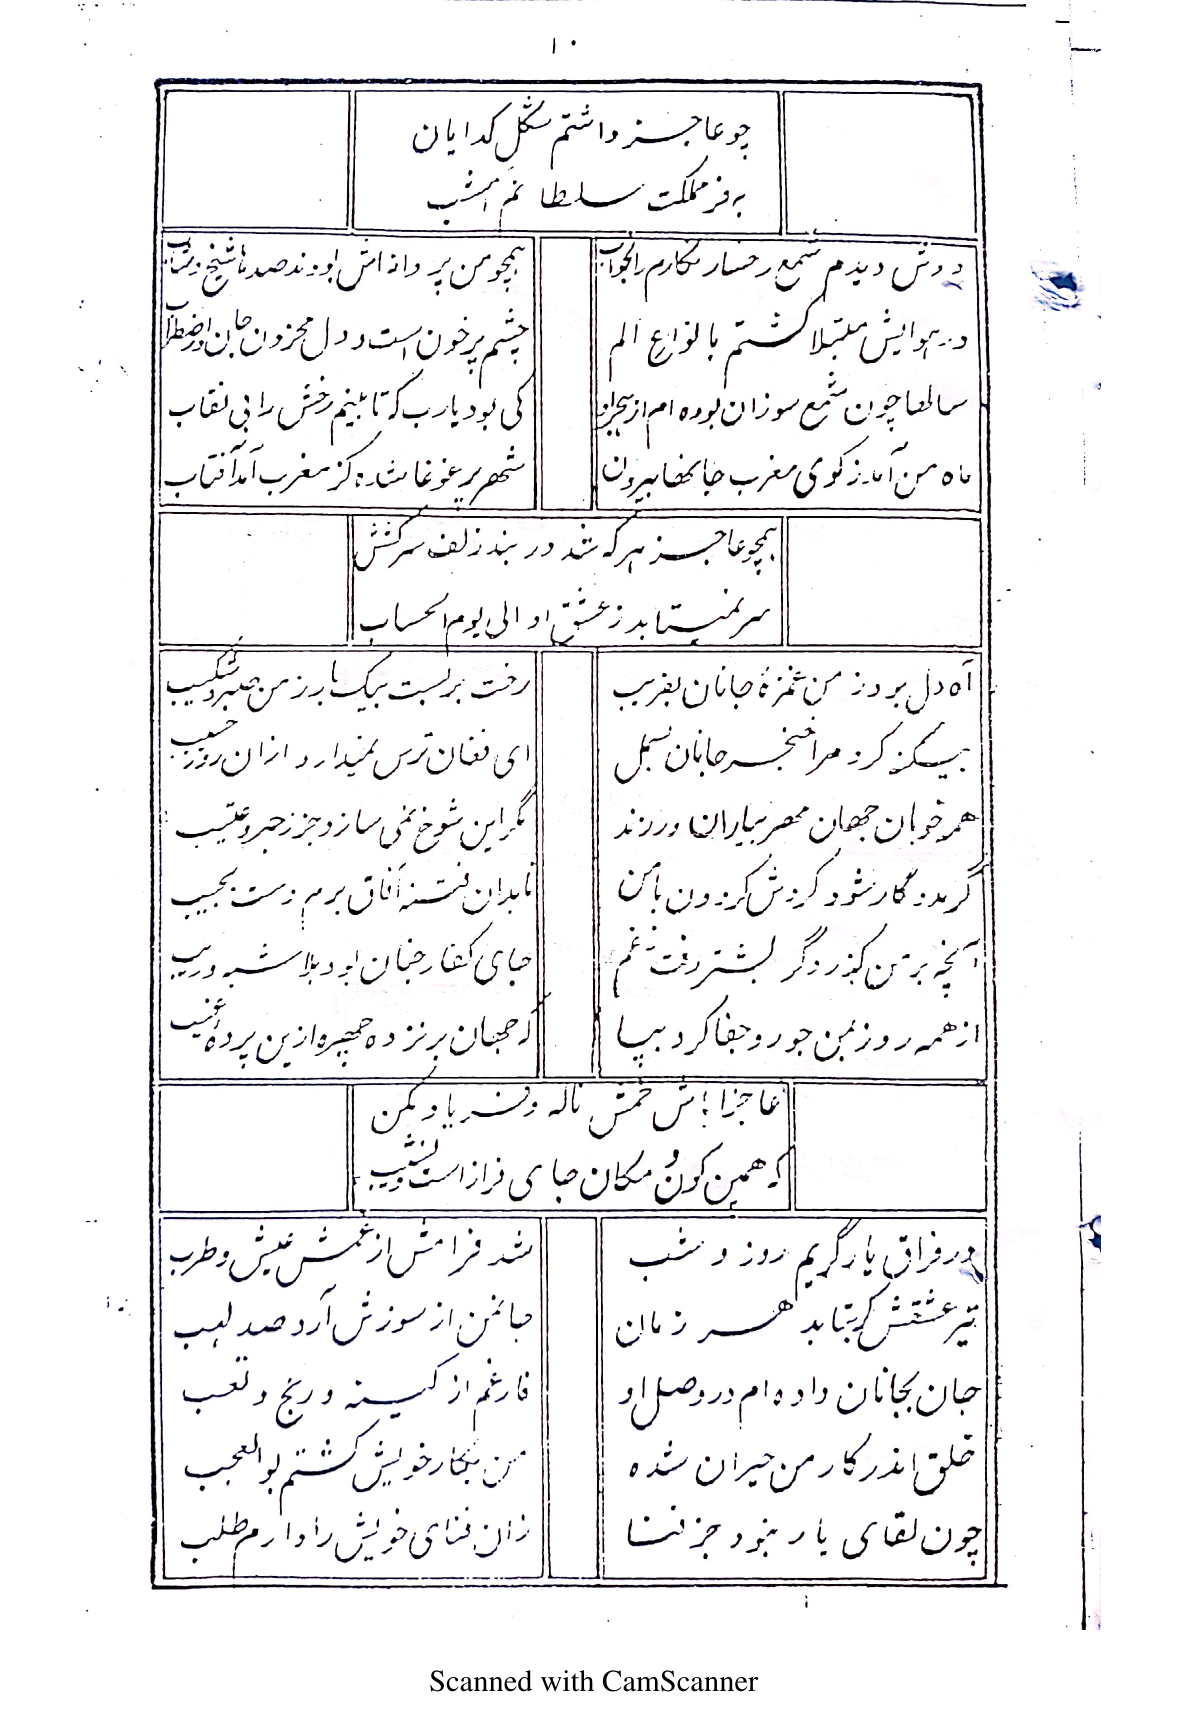 ۱۰
چو عاجز داشتم شکل گدایان
به فز مملکت سلطانم امشب
دوش دیدم شمع رخسار نگارم را بخواب
همچو من پروانه اش بودند صد ها شیخ و شاب
در هوایش مبتلا گشتم با انواع الم
چشم پر خون است و دل محزون جان در اضطراب
سالها چون شمع سوزان بوده ام از هجر او
کی بود یارب که تا بینم رخش را بی نقاب
ماه من آمد ز کوی مغرب جانها بیرون
شهر پر غوغا شده کز مغرب آمد آفتاب
همچو عاجز هر که شد در بند زلف سرکشش
سر نمیتابد ز عشق او الی یوم الحساب
آه دل برد ز من غمزهٔ جانان بفریب
رخت بر بست بیک بار ز من صبر و شکیب
بیگنه کرد مرا خنجر جانان بسمل
ای فغان ترس نمیدارد ازان روز حسیب
همه خوبان جهان مهر بیاران ورزند
مگر این شوخ نمی سازد جز زجر و عتیب
گر مددگار شود گرزش گردون با من
تا بدان فتنه آفاق برم دست بجیب
آنچه بر من گذرد گر بشتر رفت ز غم
جای کفار جنان بود بلا شبه و ریب
از همه روز بمن جور و جفا کرد بیا
که جهان بر نزده چهره ازین پرده غیب
عاجزا باش خمش ناله و فریاد مکن
که همین کون و مکان جای فراز است و نشیب
در فراق یار گریم روز و شب
شد فرامش از غمش عیش و طرب
تیر عشقش گر بتابد هر زمان
جانمن از سوزش آرد صد لهب
جان بجانان داده ام در وصل او
فارغم از کینه و رنج و تعب
خلق اندر کار من حیران شده
من بکار خویش گشتم بوالعجب
چون لقای یار نبود جز فنا
زان فنای خویش را دارم طلب
Scanned with CamScanner